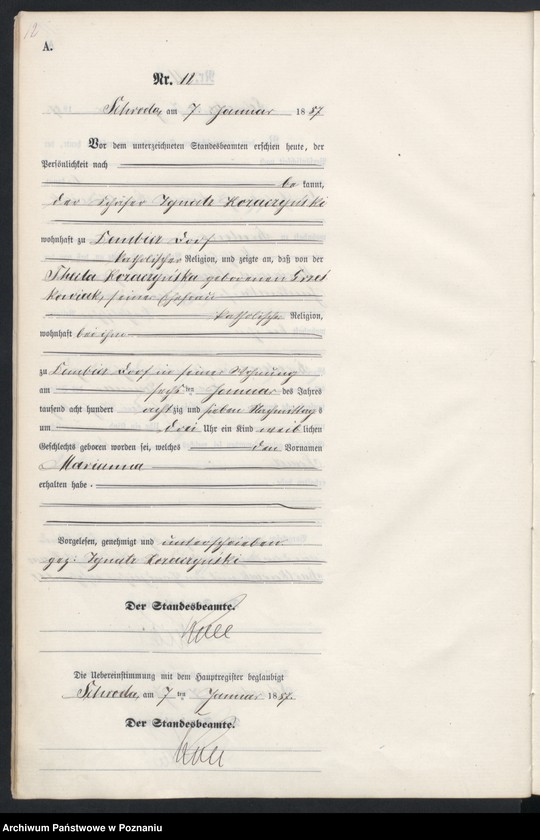 12
A.
Nr. 12
Schroda, am 7. Januar 1887
Vor dem unterzeichneten Standesbeamten erschien heute, der
Persönlichkeit nach
be kannt,
der Schäfer Ignatz Koraczyński
wohnhaft zu Dembicz Dorf
katholischer Religion, und zeigte an, daß von der
Thecla Koraczyńska geborenen
seiner Ehefrau
katholischer Religion,
wohnhaft bei ihm
zu Dembicz Dorf in seiner Wohnung
am sechsten Januar des Jahres
tausend acht hundert achtzig und sieben Nachmittags
um drei Uhr ein Kind weiblichen
Geschlechts geboren worden sei, welches den Vornamen
Marianna
erhalten habe.
Vorgelesen, genehmigt und unterschrieben
gez: Ignatz Koraczyński
Der Standesbeamte.
Die Uebereinstimmung mit dem Hauptregister beglaubigt
Schroda, am 7ten Januar 1887.
Der Standesbeamte.
Archiwum Państwowe w Poznaniu